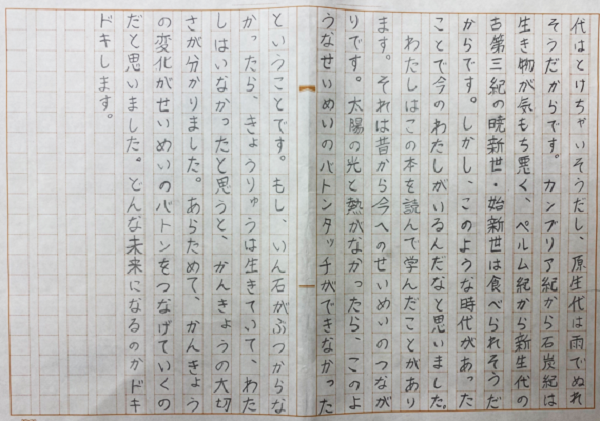 代はとけちゃいそうだし、原生代は雨でぬれ
そうだからです。カンブリア紀から石炭紀は
生き物が気もち悪く、ペルム紀から新生代の
古第三紀の暁新世・始新世は食べられそうだ
からです。しかし、このような時代があった
ことで今のわたしがいるんだなと思いました。
わたしはこの本を読んで学んだことがあり
ます。それは昔から今へのせいめいのつなが
りです。太陽の光と熱がなかったら、このよ
うなせいめいのバトンタッチができなかった
ということです。もし、いん石がぶつからな
かったら、きょうりゅうは生きていて、わた
しはいなかったと思うと、かんきょうの大切
さが分かりました。あらためて、かんきょう
の変化がせいめいのバトンをつなげていくの
だと思いました。どんな未来になるのかドキ
ドキします。